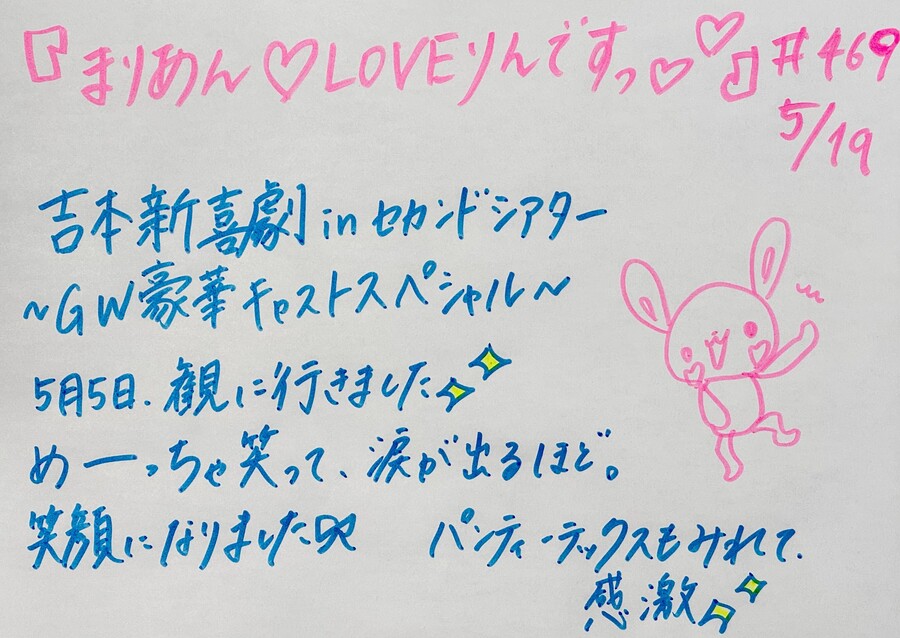 『まりあん♡LOVEりんですっ♡♡』#469
5/19
吉本新喜劇 in セカンドシアター
~GW豪華キャストスペシャル~
5月5日、観に行きました
めーっちゃ笑って、涙が出るほど。
笑顔になりました
パンティーテックスもみれて、
感激